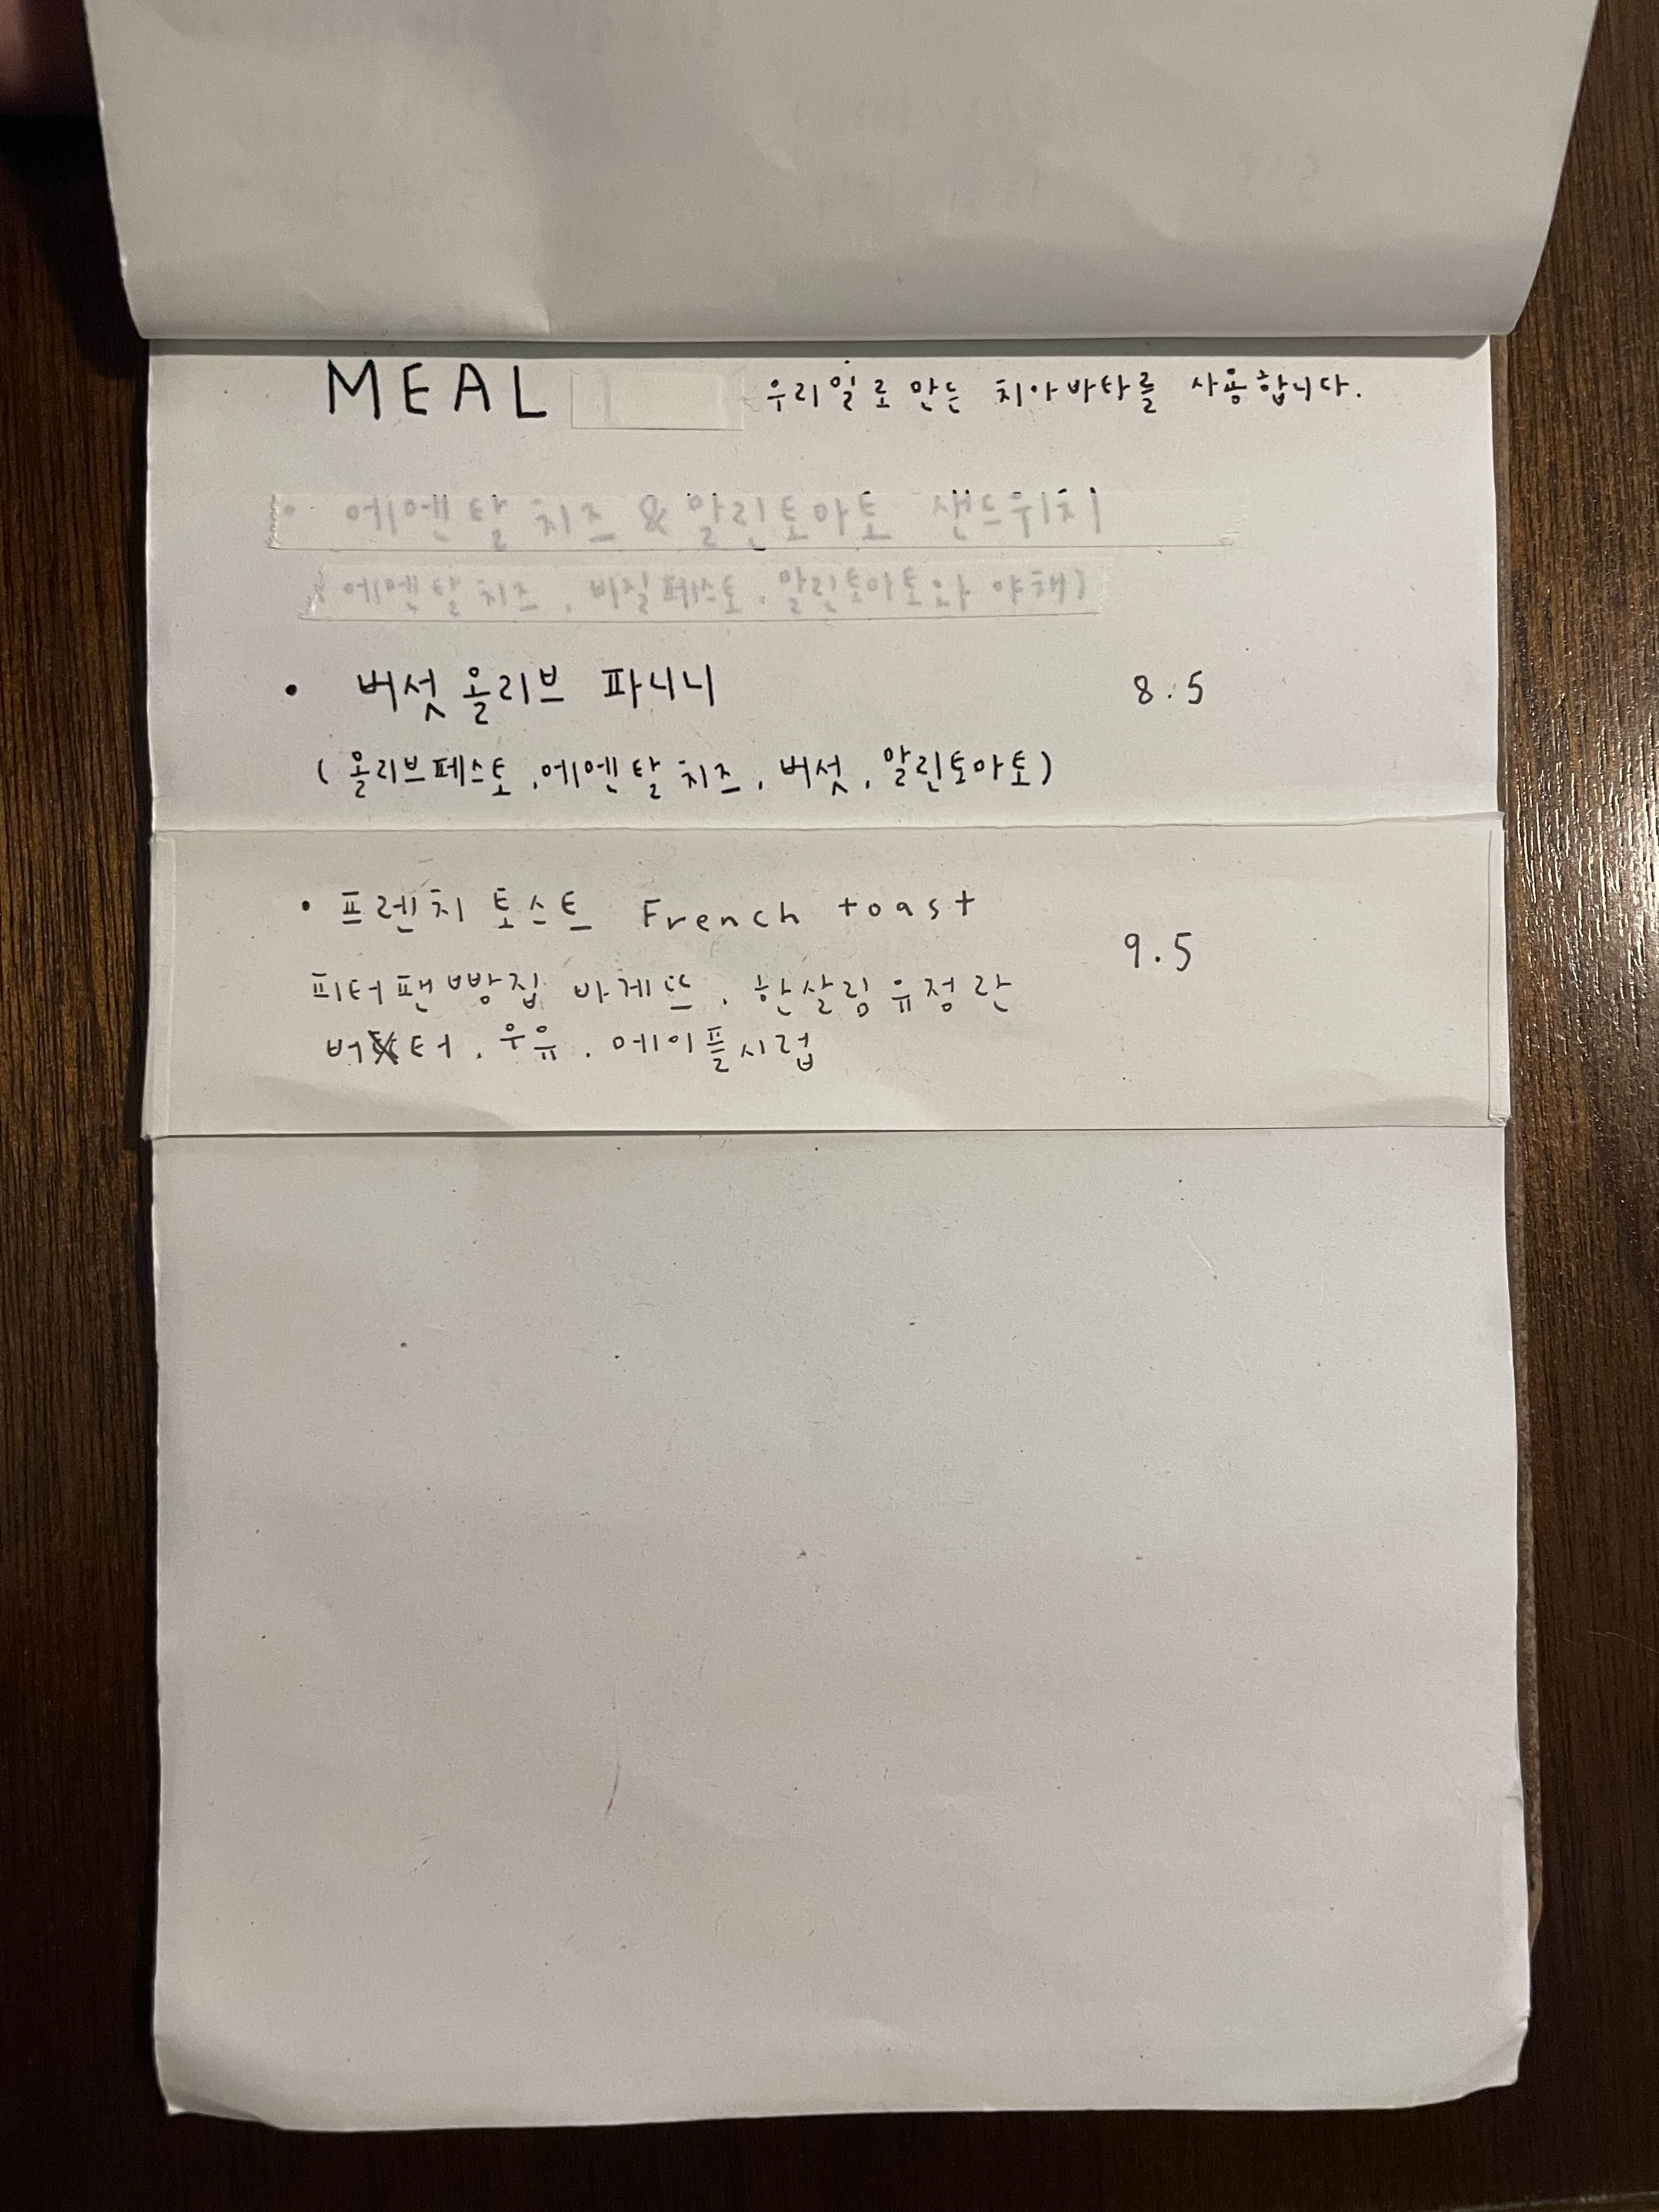 MEAL 우리밀로 만든 치아바타를 사용합니다.
• 에멘탈 치즈 & 말린토마토 샌드위치
(에멘탈 치즈, 바질페스토, 말린토마토와 야채)
• 버섯 올리브 파니니 8.5
(올리브페스토, 에멘탈 치즈, 버섯, 말린토마토)
• 프렌치 토스트 French toast
9.5
피터팬 빵집 바게뜨, 한살림 유정란
버터, 우유, 메이플시럽